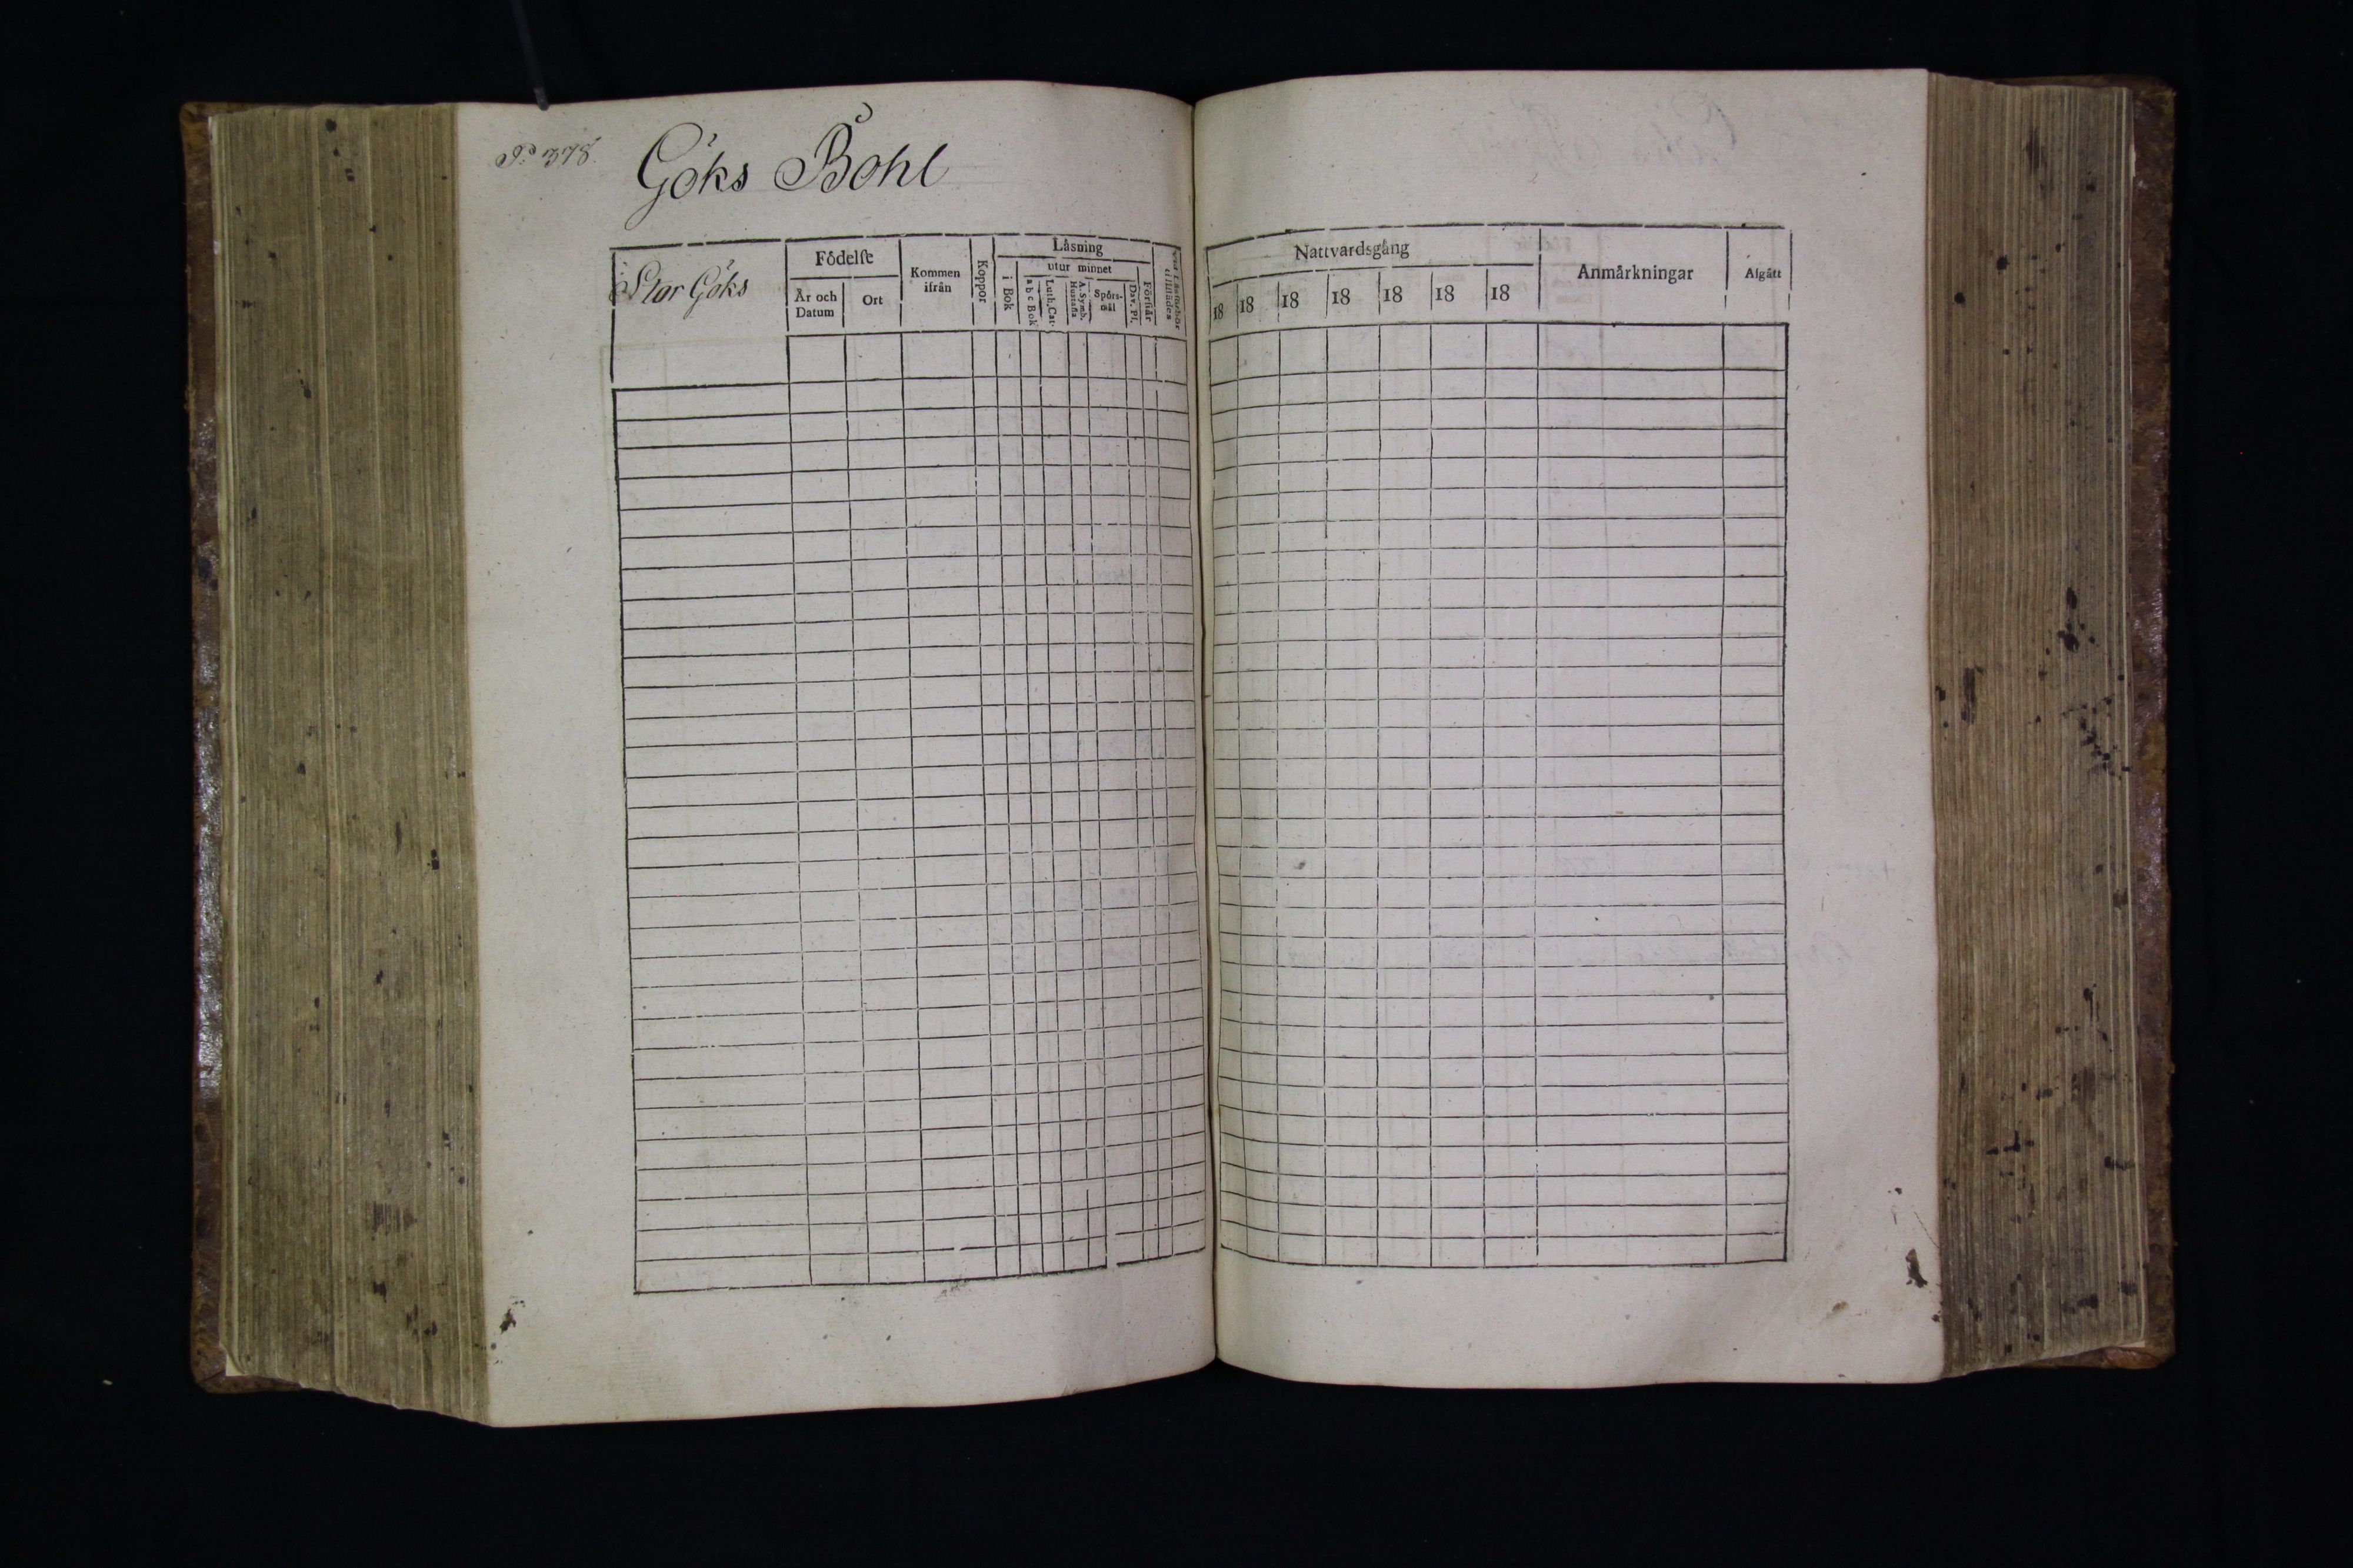 P. 378.
Göks Bohl
Stor Göks
Födelse
År och Datum
Ort
Kommen ifrån
Koppor
Läsning
i Bok
utur minnet
a b c Bok
Luth. Cat.
Hustafla
A. Symb.
Spörsmål
Dav. Ps.
Förstår
Nattvardsgång
18 18 18 18 18 18 18
Anmärkningar
Afgått